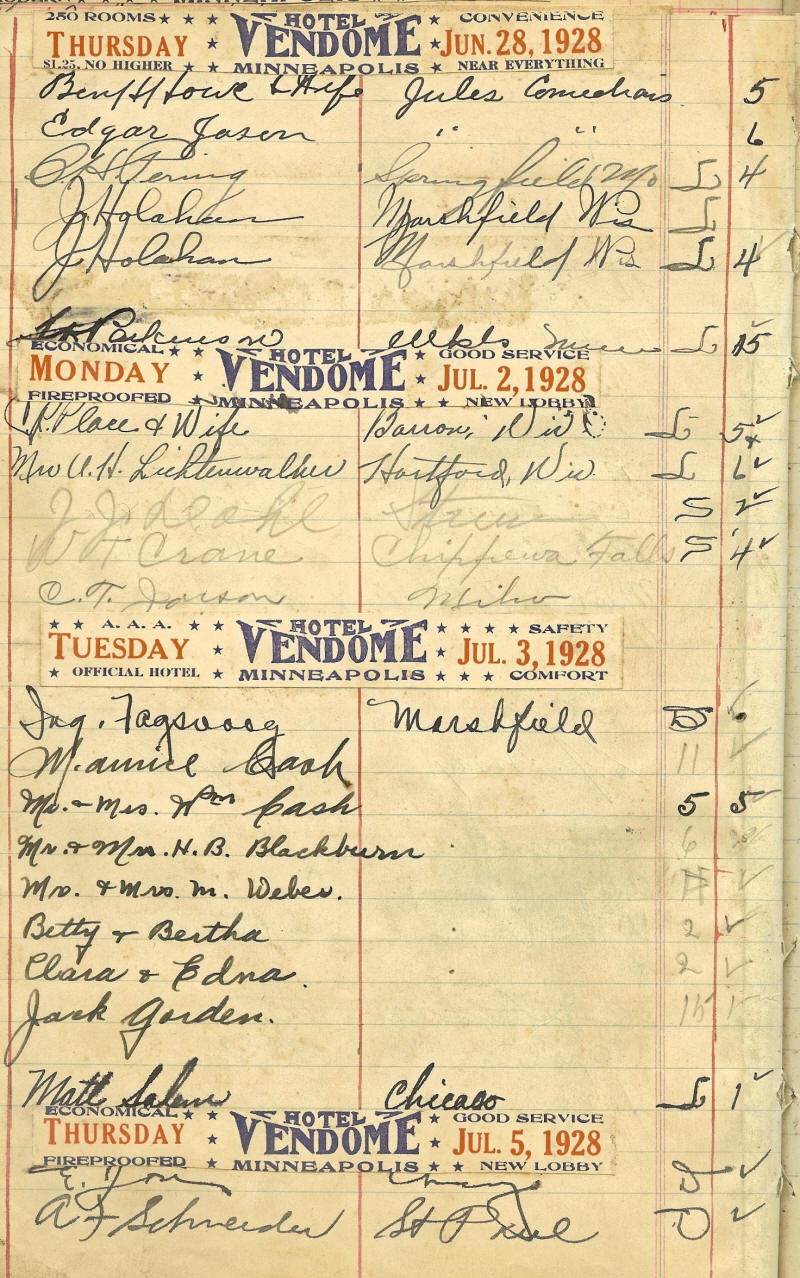 250 ROOMS ★ ★ ★ HOTEL ★ CONVENIENCE
THURSDAY ★ VENDOME ★ JUN. 28, 1928
$1.25, NO HIGHER ★ ★ MINNEAPOLIS ★ NEAR EVERYTHING
Ben H Howe & Wife Jules Comedians 5
Edgar Jason " " 6
Springfield Mo L 4
J Holahan Marshfield Wis L
J Holahan Marshfield Wis L 4
Parkinson Mpls L 15
ECONOMICAL ★ ★ HOTEL ★ GOOD SERVICE
MONDAY ★ VENDOME ★ JUL. 2, 1928
FIREPROOFED ★ MINNEAPOLIS ★ ★ NEW LOBBY
Place & Wife Barron, Wis L 5
Mrs A. H. Lichtenwalher Hartford, Wis L 6 ✓
J. J. S 2 ✓
W H Crane Chippewa Falls S 4 ✓
C. T. Milw
★ ★ A. A. A. ★ ★ HOTEL ★ ★ ★ ★ SAFETY
TUESDAY ★ VENDOME ★ JUL. 3, 1928
★ OFFICIAL HOTEL ★ MINNEAPOLIS ★ ★ ★ COMFORT
Marshfield D
Maurice Cash 11 ✓
Mr. & Mrs. Wm Cash 5 5 ✓
Mr. & Mrs. H. B. Blackburn 6
Mr. & Mrs. M. Weber. ✓
Betty & Bertha 2 ✓
Clara & Edna. 2 ✓
Jack Gorden. 15 ✓
Matt Salem Chicago L 1 ✓
ECONOMICAL ★ ★ HOTEL ★ GOOD SERVICE
THURSDAY ★ VENDOME ★ JUL. 5, 1928
FIREPROOFED ★ MINNEAPOLIS ★ ★ NEW LOBBY
E. D ✓
A F Schneider St Paul D ✓